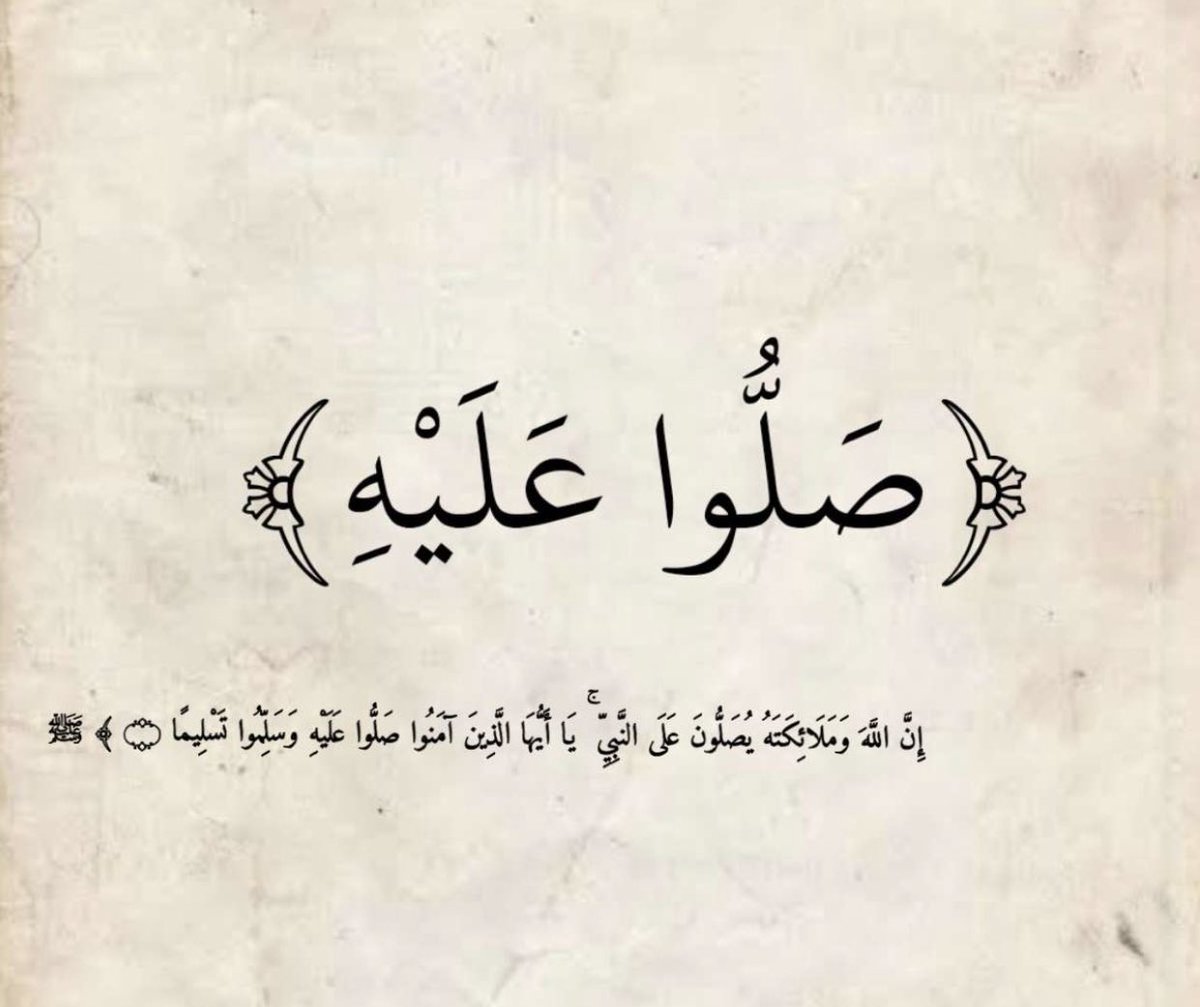 ﴿ صَلُّوا عَلَيْهِ ﴾
إِنَّ اللَّهَ وَمَلَائِكَتَهُ يُصَلُّونَ عَلَى النَّبِيِّ ۚ يَا أَيُّهَا الَّذِينَ آمَنُوا صَلُّوا عَلَيْهِ وَسَلِّمُوا تَسْلِيمًا ۝ ﴾ ﷺ